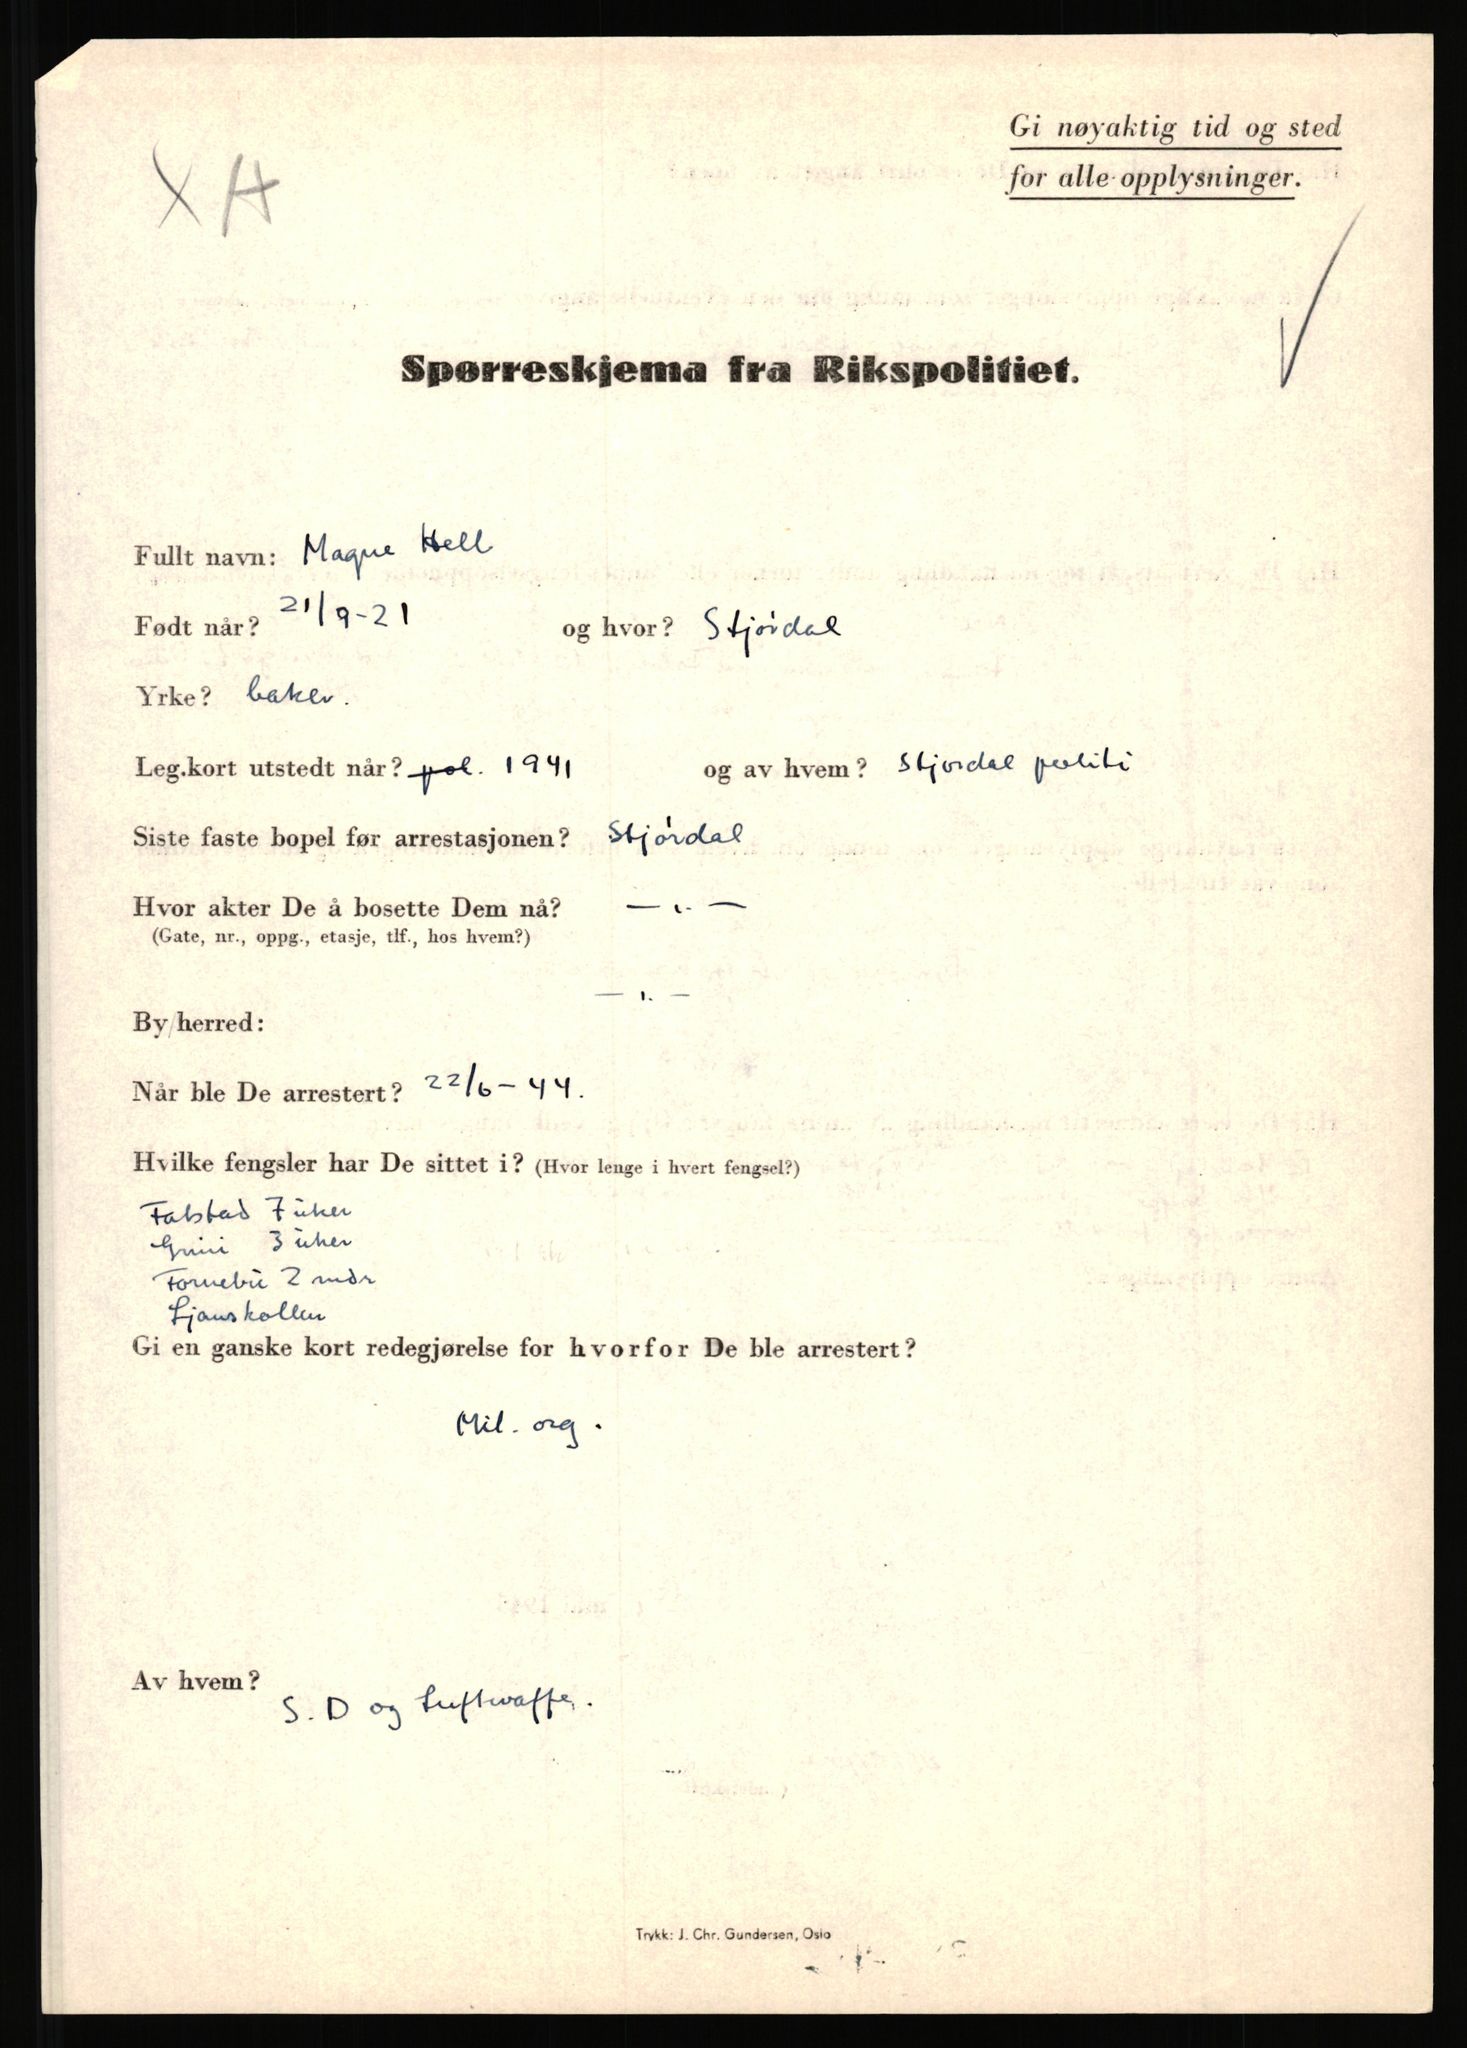 Gi nøyaktig tid og sted
for alle opplysninger.
X A
Spørreskjema fra Rikspolitiet.
Fullt navn: Magne Hell
Født når? 21/9-21 og hvor? Stjórdal
Yrke? baker.
Leg.kort utstedt når? pol. 1941 og av hvem? Stjørdal politi
Siste faste bopel før arrestasjonen? Stjórdal
Hvor akter De å bosette Dem nå? — ı. —
(Gate, nr., oppg., etasje, tlf., hos hvem?)
— ı. —
By/herred:
Når ble De arrestert? 22/6-44.
Hvilke fengsler har De sittet i? (Hvor lenge i hvert fengsel?)
Falstad 7 uker
Grini 3 uker
Fornebu 2 mdr
Ljanskollen
Gi en ganske kort redegjørelse for hvorfor De ble arrestert?
Mil. org.
Av hvem?
S.D og Luftwaffe.
Trykk: J. Chr. Gundersen, Oslo